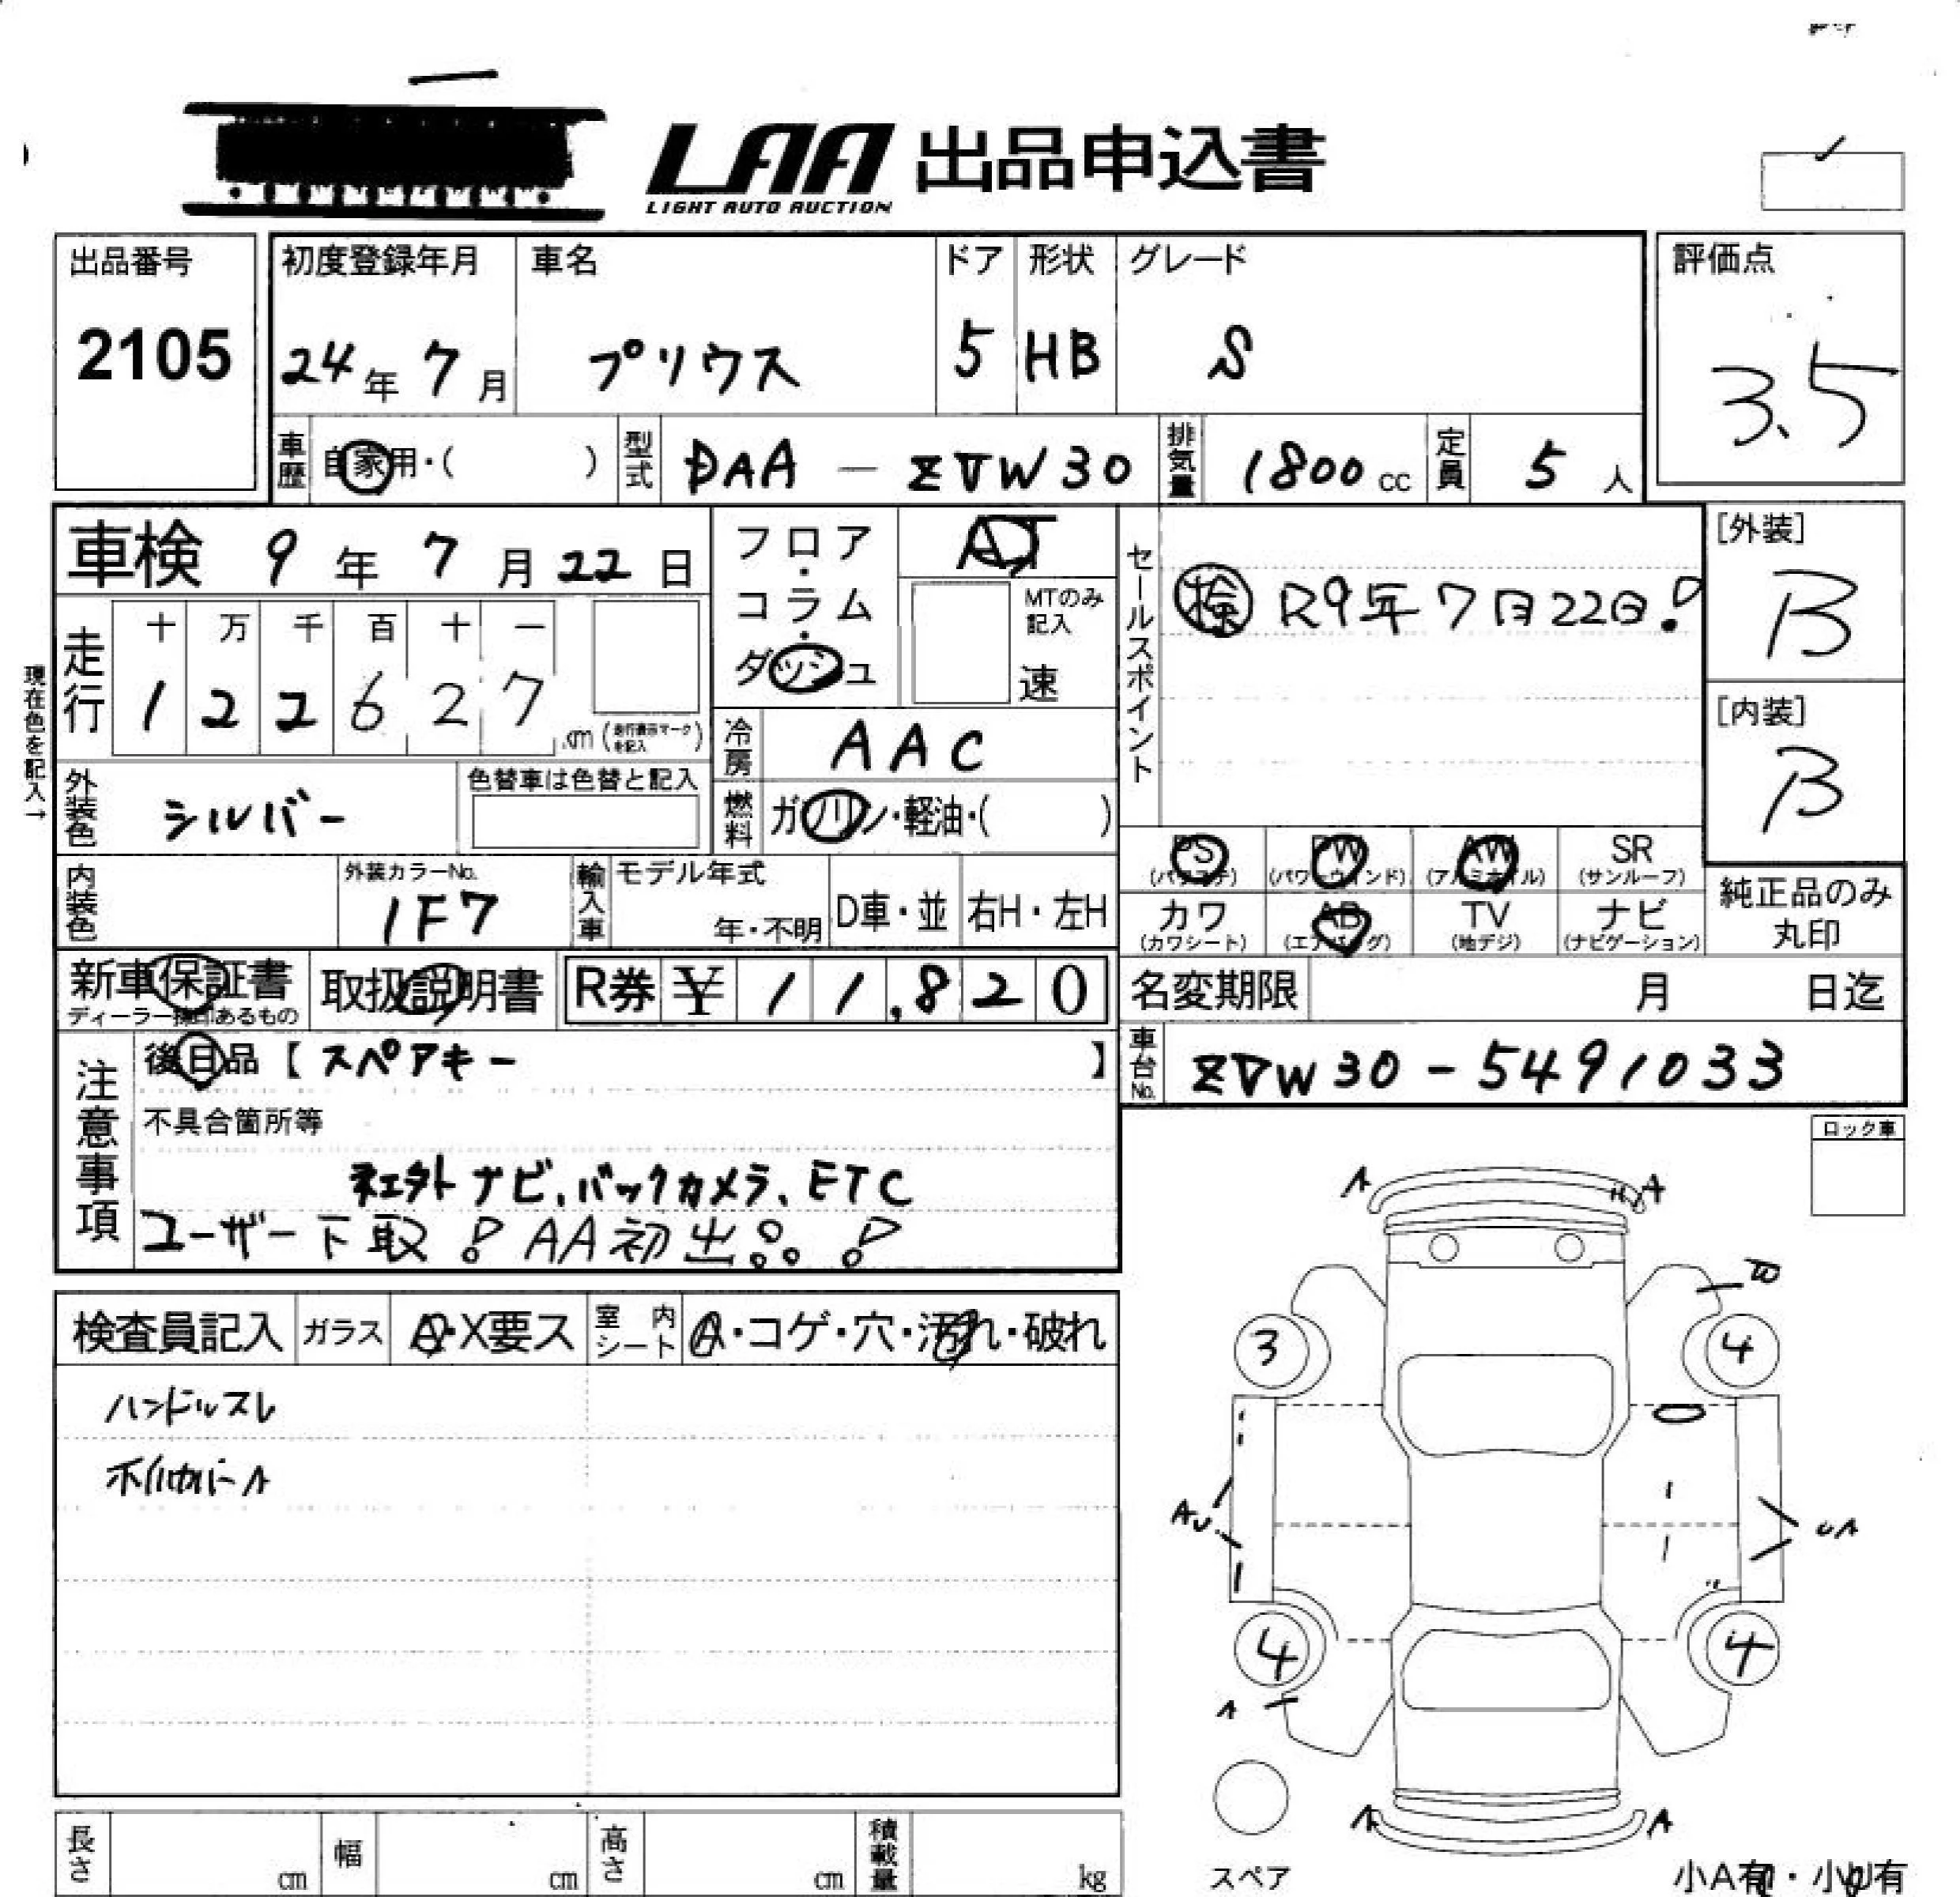 LAA 出品申込書
LIGHT AUTO AUCTION
出品番号
2105
初度登録年月
24年 7月
車名
プリウス
ドア
5
形状
HB
グレード
S
評価点
3.5
車歴
自家用・( )
型式
DAA - ZVW30
排気量
1800 cc
定員
5 人
車検 9年 7月 22日
フロア・コラム・ダッシュ
AT
MTのみ記入
速
セールスポイント
検 R9年7月22日!
[外装]
B
[内装]
B
現在色を記入→
走行
十 万 千 百 十 一
1 2 2 6 2 7 km (走行表示マークを記入)
冷房
AAC
外装色
シルバー
色替車は色替と記入
燃料
ガソリン・軽油・( )
PS
(パワステ)
PW
(パワーウインド)
AW
(アルミホイル)
SR
(サンルーフ)
カワ
(カワシート)
AB
(エアバッグ)
TV
(地デジ)
ナビ
(ナビゲーション)
純正品のみ
丸印
内装色
外装カラーNo.
1F7
輸入車
モデル年式
年・不明
D車・並
右H・左H
新車保証書
ディーラー捺印あるもの
取扱説明書
R券 ¥ 11,820
名変期限 月 日迄
車台No.
ZVW30-5491033
注意事項
後日品【スペアキー 】
不具合箇所等
社外ナビ、バックカメラ、ETC
ユーザー下取! AA初出!!
ロック車
検査員記入
ガラス
A・X要ス
室内シート
A・コゲ・穴・汚れ・破れ
ハンドルスレ
ホイルカバーA
A
A
W
3
4
AU
UA
4
4
A
A
A
スペア
小A有・小U有
長さ cm
幅 cm
高さ cm
積載量 kg